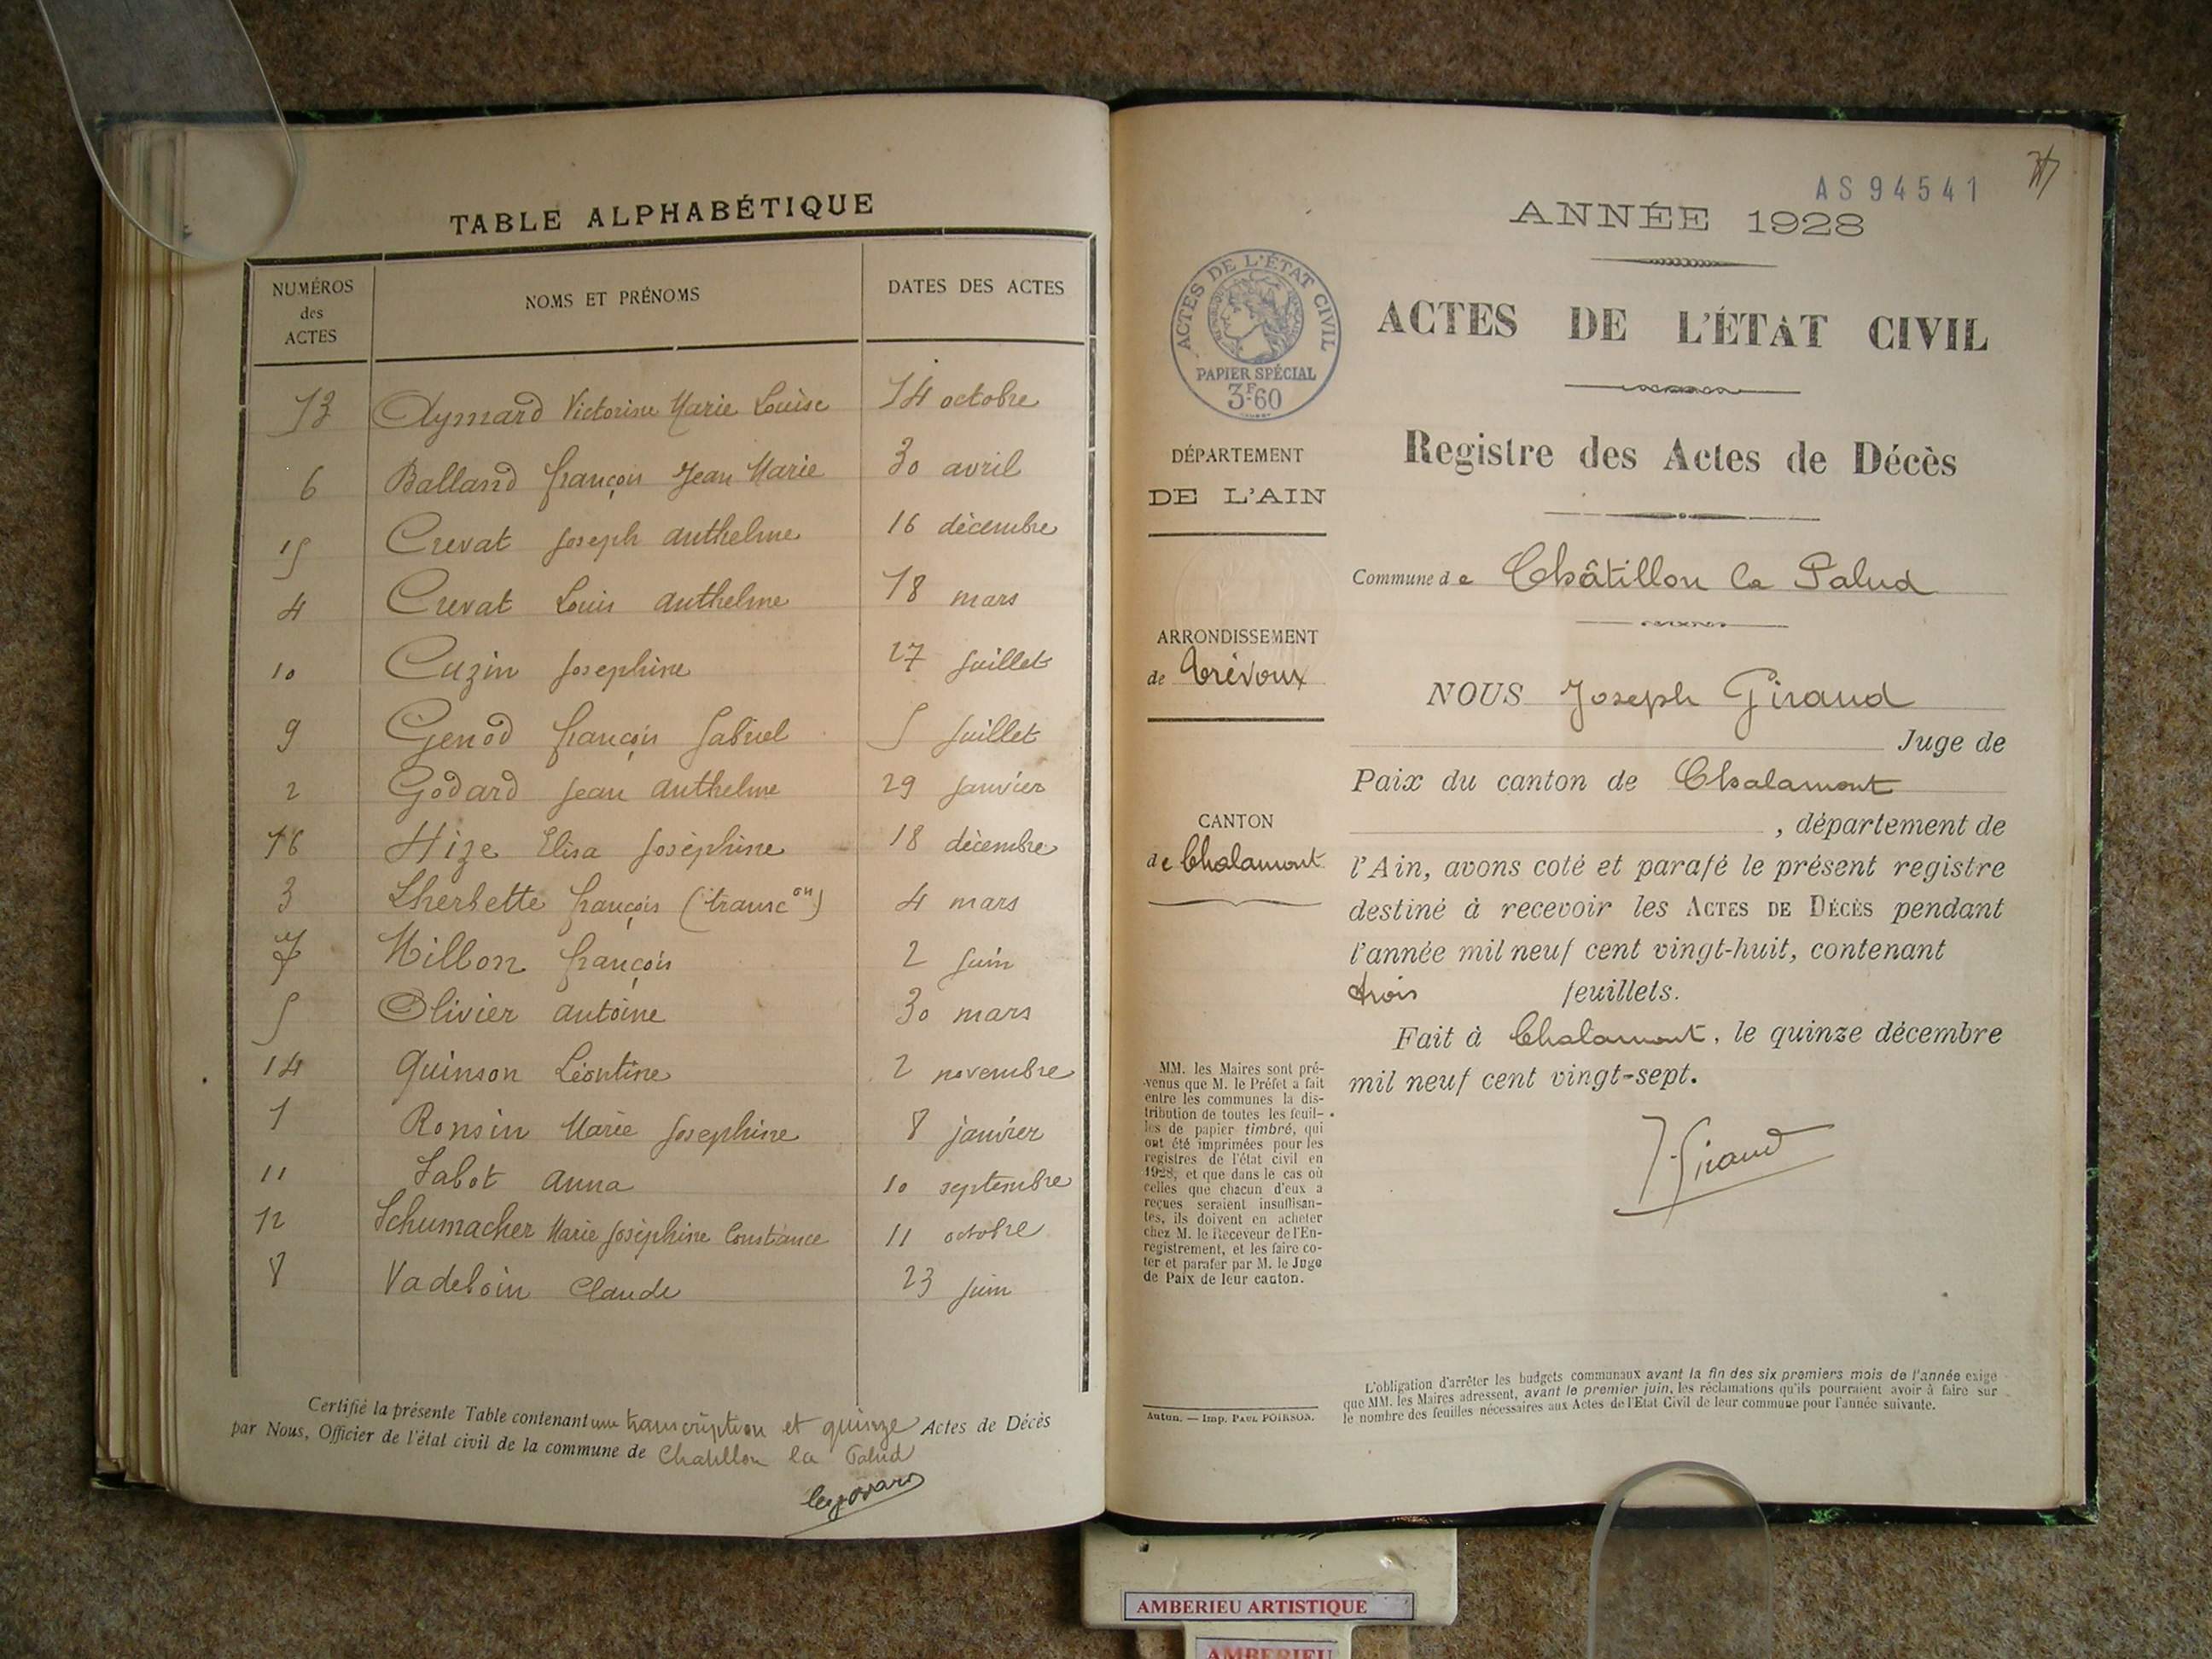 TABLE ALPHABÉTIQUE
NUMÉROS des ACTES
NOMS ET PRÉNOMS
DATES DES ACTES
13 Aymard Victorine Marie Louise 14 octobre
6 Balland françois Jean Marie 30 avril
15 Crevat Joseph anthelme 16 décembre
4 Crevat Louis anthelme 18 mars
10 Cuzin Josephine 27 Juillet
9 Genod françois Gabriel 5 Juillet
2 Godard Jean anthelme 29 Janvier
16 Hize Elisa Joséphine 18 décembre
3 Lherbette françois (transc on) 4 mars
7 Millon françois 2 Juin
5 Olivier antoine 30 mars
14 Quinson Léontine 2 novembre
1 Ronsin Marie Josephine 8 janvier
11 Sabot anna 10 septembre
12 Schumacher Marie Joséphine Constance 11 octobre
8 Vadeboin Claude 23 Juin
Certifié la présente Table contenant une transcription et quinze Actes de Décès
par Nous, Officier de l'état civil de la commune de Chatillon la Palud
AS 94541
ANNÉE 1928
ACTES DE L'ÉTAT CIVIL
PAPIER SPÉCIAL
3F60
ACTES DE L'ÉTAT CIVIL
Registre des Actes de Décès
DÉPARTEMENT
DE L'AIN
Commune de Châtillon la Palud
ARRONDISSEMENT
de Trévoux
NOUS Joseph Giraud
Juge de
Paix du canton de Chalamont
, département de
CANTON
de Chalamont
l'Ain, avons coté et parafé le présent registre
destiné à recevoir les ACTES DE DÉCÈS pendant
l'année mil neuf cent vingt-huit, contenant
trois feuillets.
Fait à Chalamont, le quinze décembre
mil neuf cent vingt-sept.
J. Giraud
MM. les Maires sont pré-
venus que M. le Préfet a fait
entre les communes la dis-
tribution de toutes les feuil-
les de papier timbré, qui
ont été imprimées pour les
registres de l'état civil en
1928, et que dans le cas où
celles que chacun d'eux a
reçues seraient insuffisan-
tes, ils doivent en acheter
chez M. le Receveur de l'En-
registrement, et les faire co-
ter et parafer par M. le Juge
de Paix de leur canton.
Autun. — Imp. PAUL POIRSON.
L'obligation d'arrêter les budgets communaux avant la fin des six premiers mois de l'année exige
que MM. les Maires adressent, avant le premier juin, les réclamations qu'ils pourraient avoir à faire sur
le nombre des feuilles nécessaires aux Actes de l'Etat Civil de leur commune pour l'année suivante.
AMBERIEU ARTISTIQUE
AMBERIEU